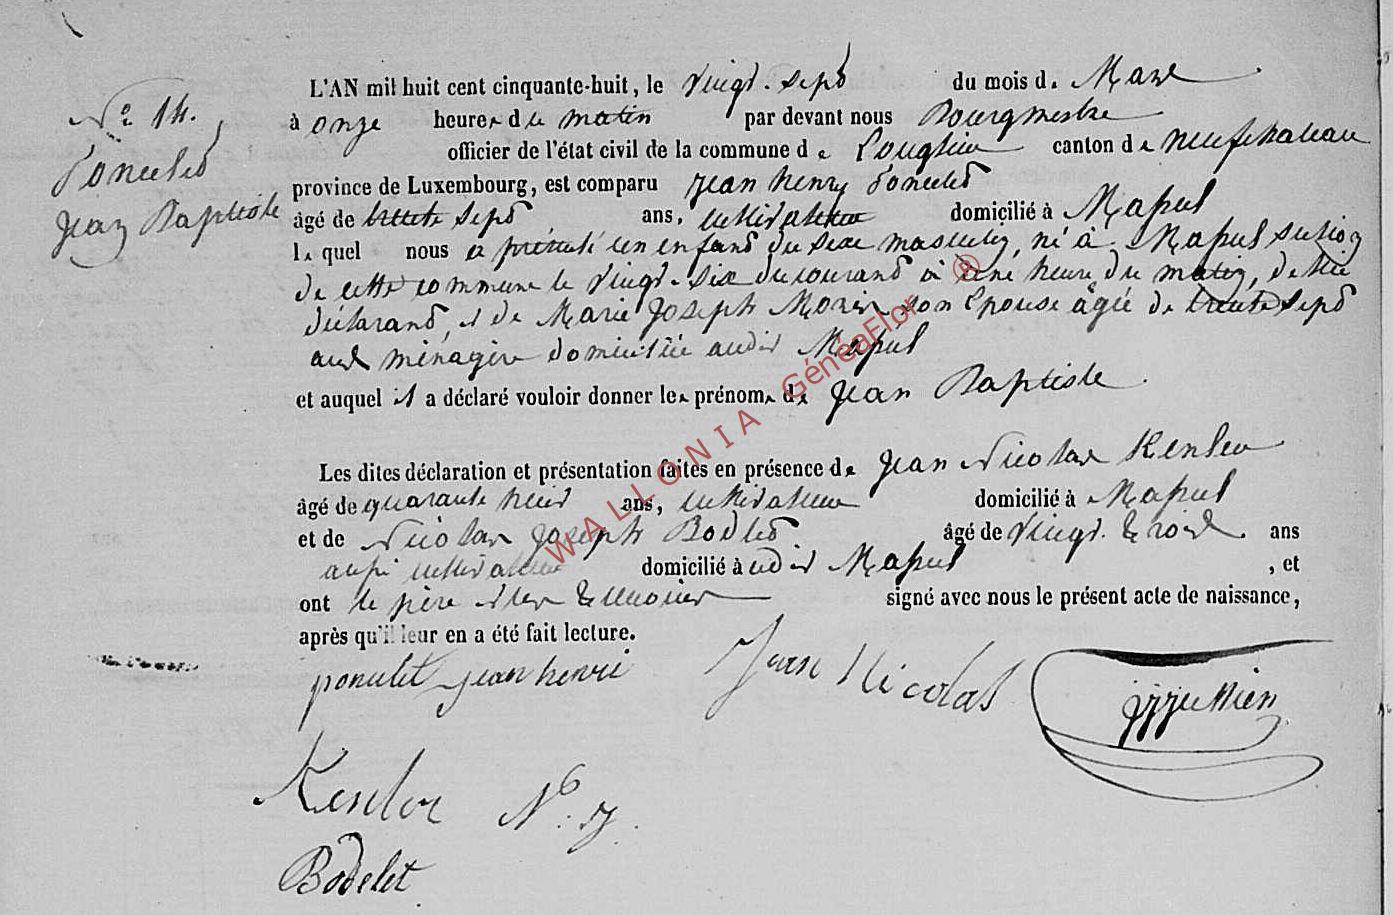 N° 14.
Poncelet
Jean Baptiste
L'AN mil huit cent cinquante-huit, le vingt-sept du mois de Mars
à onze heures du matin par devant nous Bourgmestre
officier de l'état civil de la commune de Longlier canton de neufchateau
province de Luxembourg, est comparu Jean henry Poncelet
âgé de trente sept ans, cultivateur domicilié à Massul
lequel nous a présenté un enfant du sexe masculin, né à Massul section
de cette commune le vingt-six du courant à une heure du matin, de lui
déclarant, et de Marie Joseph Moris son Epouse âgée de trente sept
ans ménagère domiciliée audit Massul
et auquel il a déclaré vouloir donner les prénoms de Jean Baptiste
Les dites déclaration et présentation faites en présence de Jean Nicolas Kenler
âgé de quarante huit ans, cultivateur domicilié à Massul
et de Nicolas Joseph Bodlet âgé de vingt-trois ans
aussi cultivateur domicilié à udit Massul , et
ont le père et les témoins signé avec nous le présent acte de naissance,
après qu'il leur en a été fait lecture.
poncelet jean henri Jean Nicolas
Kenler N. J.
Bodelet
WALLONIA GénéaFlor ®